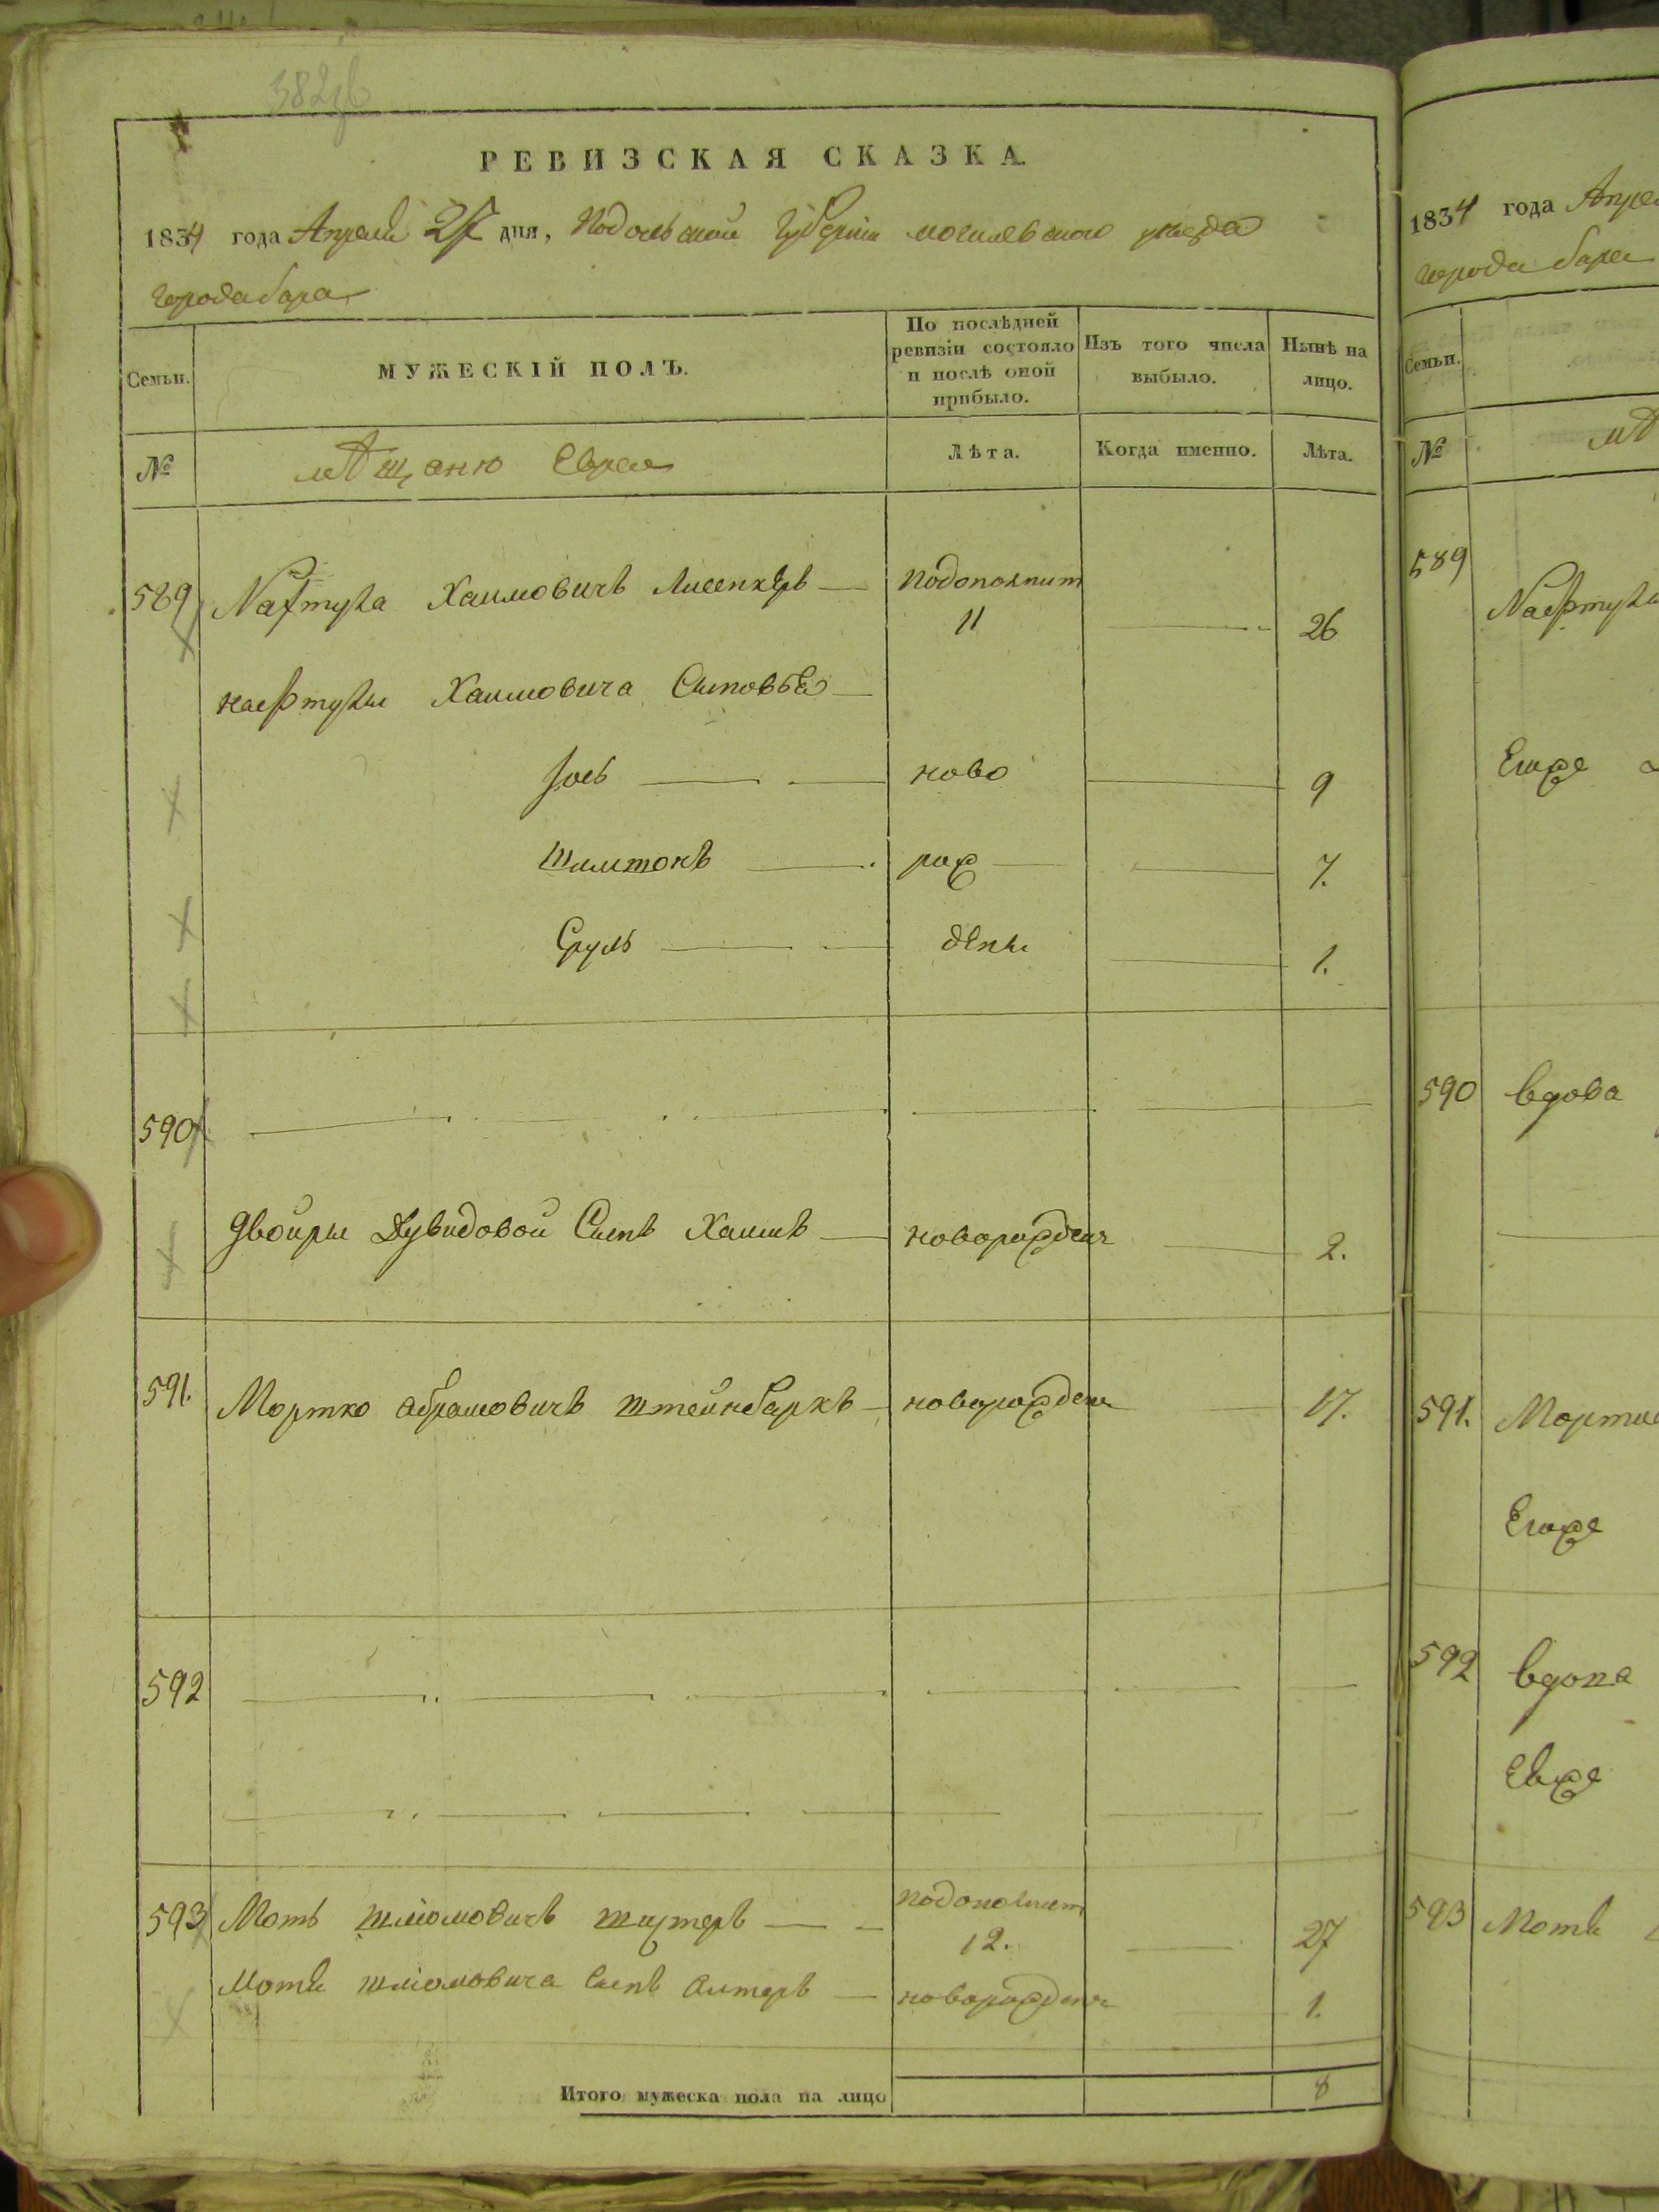 РЕВИЗСКАЯ СКАЗКА.
1834 года Апреля 27 дня, Подольской Губерніи могилевского уезда
города бара
Семьи.
МУЖЕСКІЙ ПОЛЪ.
По послѣдней ревизіи состояло и послѣ оной прибыло.
Изъ того числа выбыло.
Нынѣ на лицо.
№
мѣщане Евреи
Лѣта.
Когда именно.
Лѣта.
589 Нафтула Хаимовичъ подополнит
11 26
нафтулы Хаимовича Сыновья
Іось ново 9
Шимшонъ рож 7.
Сруль дены 1.
590
Двойры Дувидовой Сынъ Хаимъ новорожден 2.
591. Мортко абрамовичъ штейнбаркъ новорожден 17.
592
593 Моть шліомовичъ подополнит
12. 27
Мотя шліомовича Сынъ Алтеръ новорожден 1.
Итого мужеска пола на лицо 8
1834 года Апре
города бара
Семьи.
№
мѣ
589
Нафтулы
Егоже
590 вдова
591. Мортк
Егоже
592 вдова
Еяже
593 Мотя